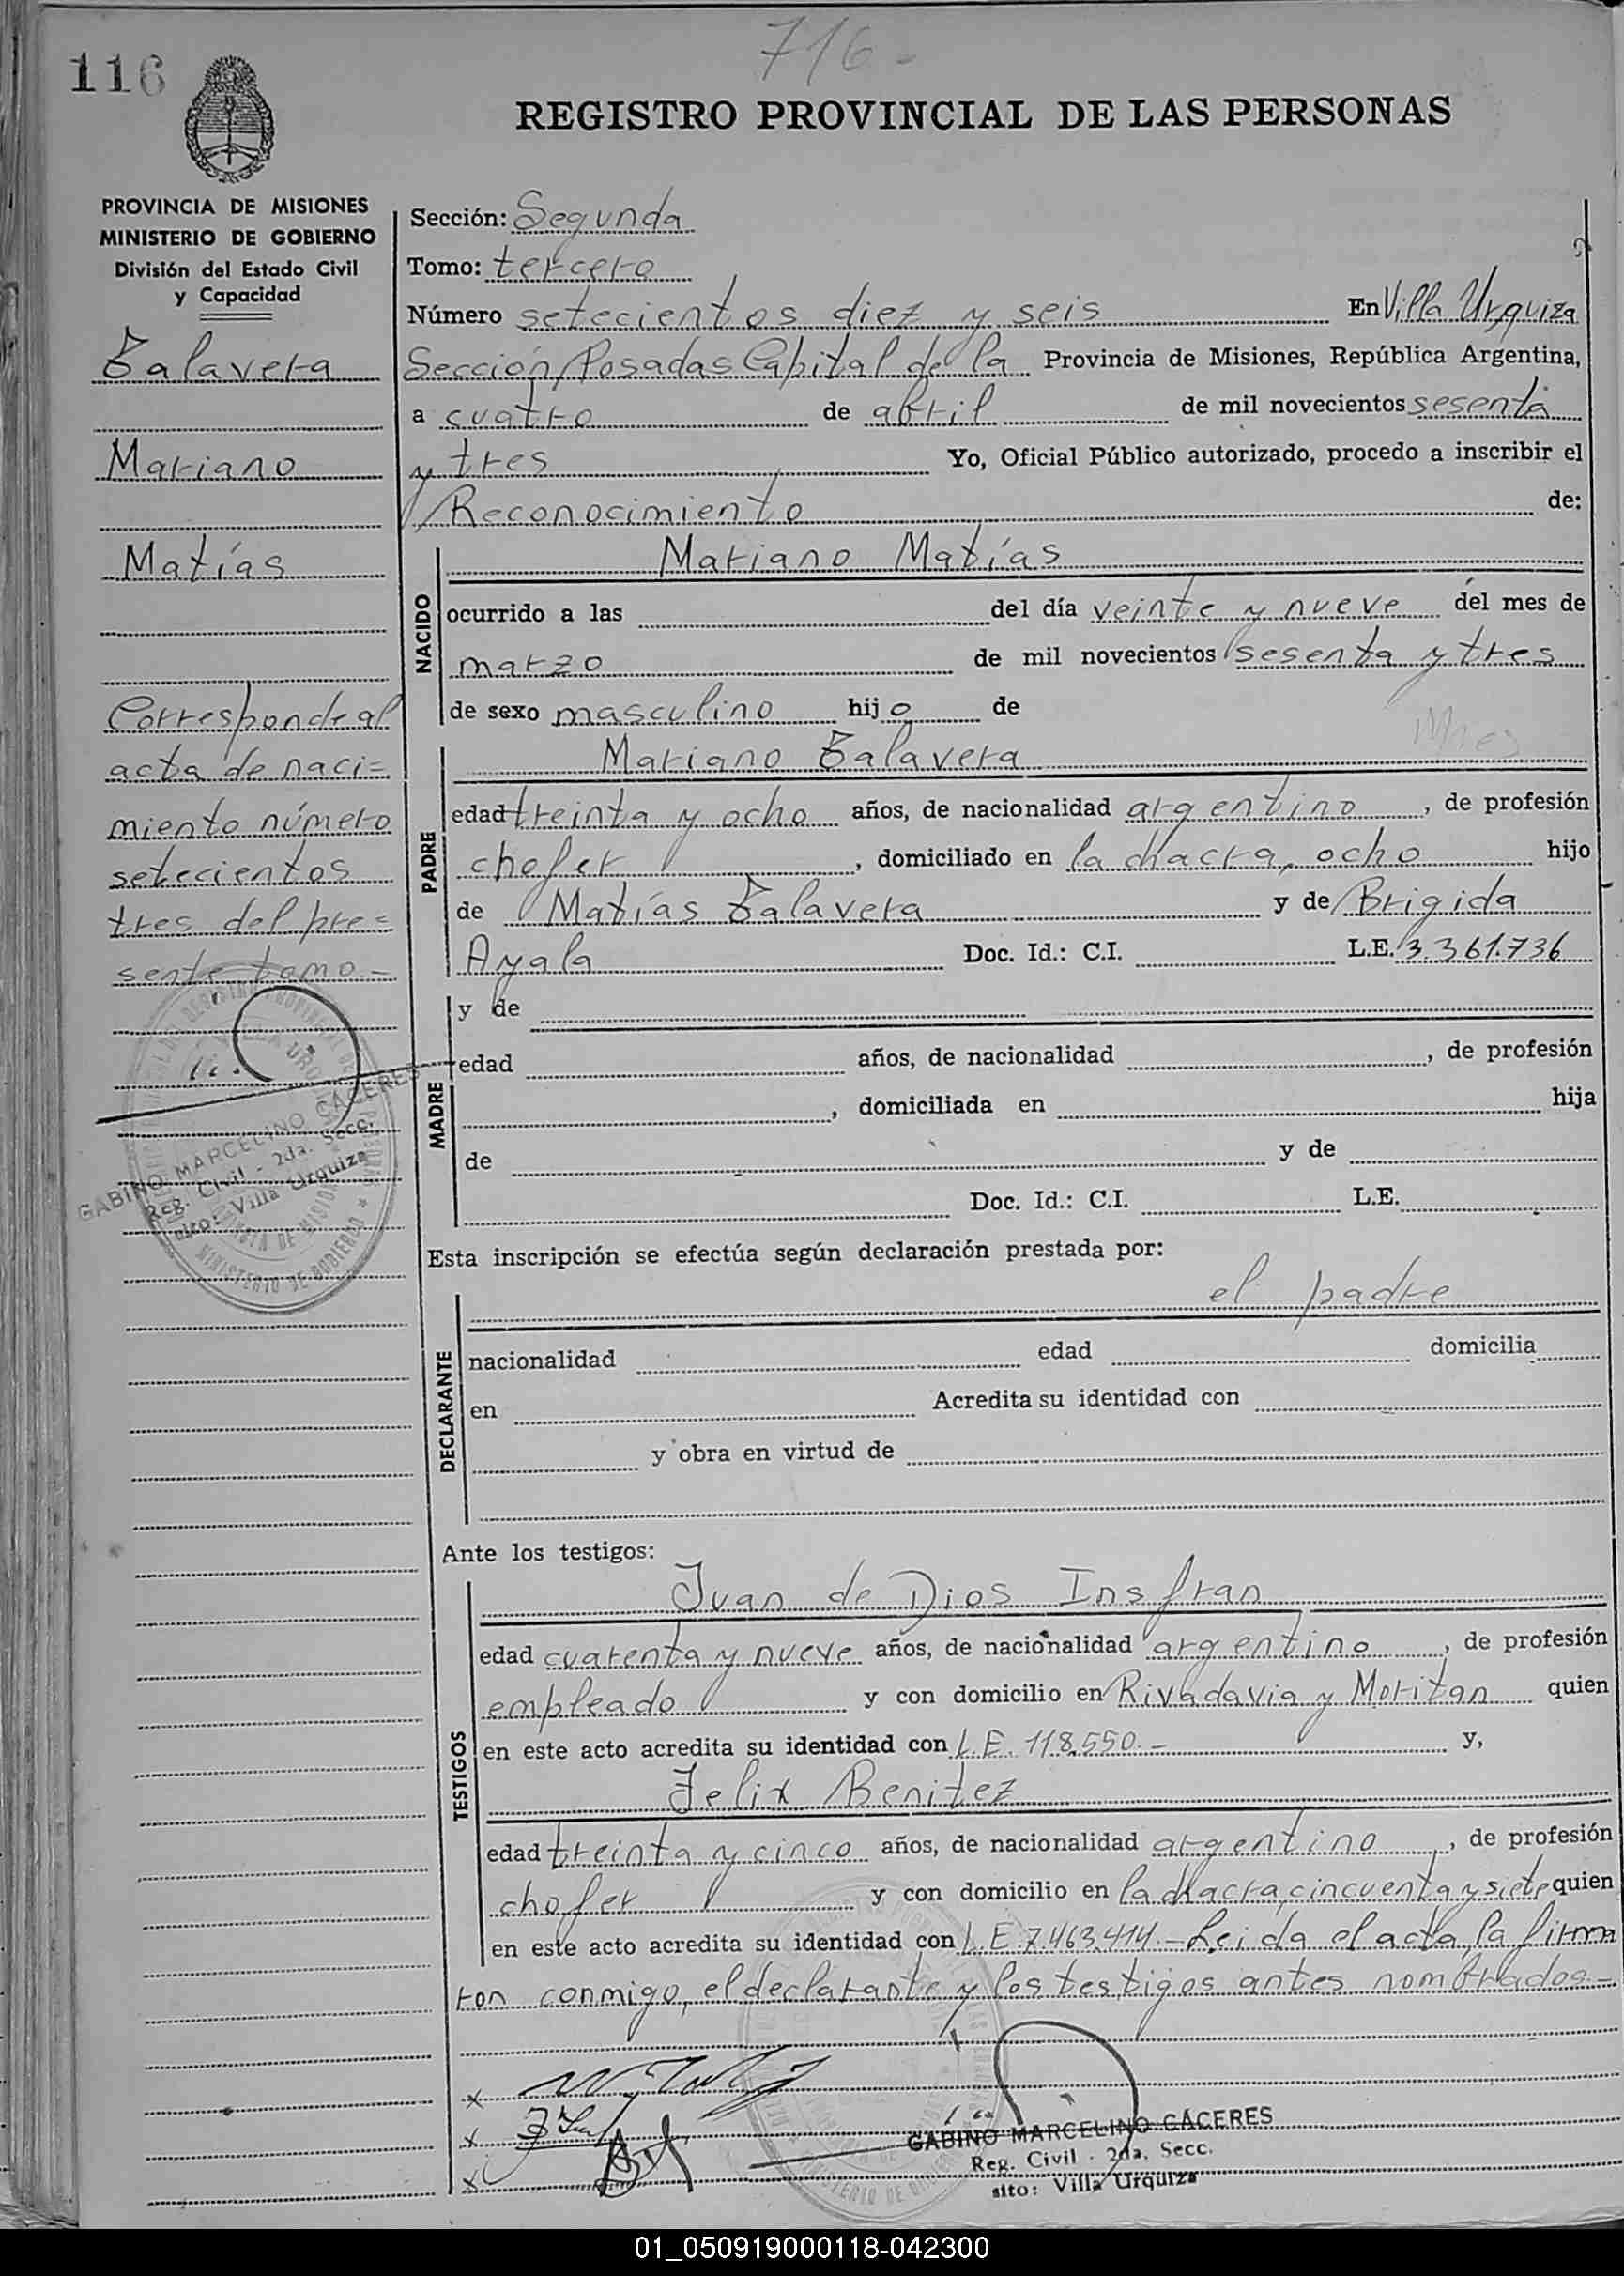 716-
116
REGISTRO PROVINCIAL DE LAS PERSONAS
PROVINCIA DE MISIONES
MINISTERIO DE GOBIERNO
División del Estado Civil
y Capacidad
Talavera
Mariano
Matías
Corresponde al
acta de naci=
miento número
setecientos
tres del pre=
sente tomo -
GABINO MARCELINO CACERES
Reg. Civil - 2da. Secc.
sito: Villa Urquiza
Sección: Segunda
Tomo: tercero
Número setecientos diez y seis En Villa Urquiza
Sección Posadas Capital de la Provincia de Misiones, República Argentina,
a cuatro de abril de mil novecientos sesenta
y tres Yo, Oficial Público autorizado, procedo a inscribir el
Reconocimiento de:
NACIDO
Mariano Matías
ocurrido a las del día veinte y nueve del mes de
marzo de mil novecientos sesenta y tres
de sexo masculino hijo de
PADRE
Mariano Talavera
edad treinta y ocho años, de nacionalidad argentino, de profesión
chofer, domiciliado en la chacra, ocho hijo
de Matías Talavera y de Brigida
Ayala Doc. Id.: C.I. L.E. 3.361.736
MADRE
y de
edad años, de nacionalidad , de profesión
, domiciliada en hija
de y de
Doc. Id.: C.I. L.E.
Esta inscripción se efectúa según declaración prestada por:
DECLARANTE
el padre
nacionalidad edad domicilia
en Acredita su identidad con
y obra en virtud de
Ante los testigos:
TESTIGOS
Juan de Dios Insfran
edad cuarenta y nueve años, de nacionalidad argentino, de profesión
empleado y con domicilio en Rivadavia y Moritan quien
en este acto acredita su identidad con L.E. 118.550.- y,
Felix Benitez
edad treinta y cinco años, de nacionalidad argentino, de profesión
chofer y con domicilio en la chacra, cincuenta y siete quien
en este acto acredita su identidad con L.E. 7.463.414.- Leida el acta, la firma
ron conmigo, el declarante y los testigos antes nombrados.-
GABINO MARCELINO CÁCERES
Reg. Civil - 2da. Secc.
sito: Villa Urquiza
01_050919000118-042300